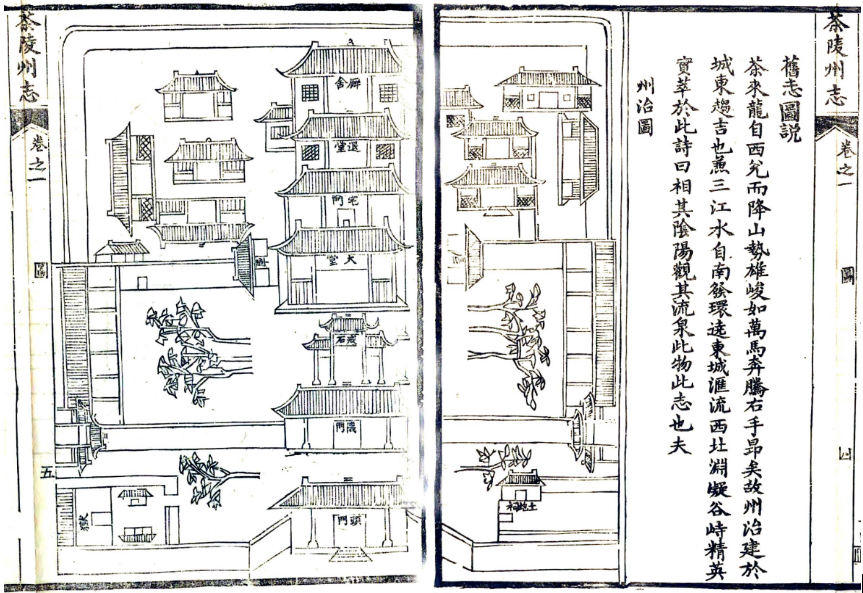 茶陵州志
卷之一
圖
四
舊志圖説
茶來龍自西兊而降山勢雄峻如萬馬奔騰右手昻矣故州治建於
城東趨吉也兼三江水自南發環遶東城滙流西北淵凝谷峙精英
實萃於此詩曰相其陰陽觀其流泉此物此志也夫
州治圖
土地祠
廨舍
退堂
宅門
大堂
戒石
儀門
頭門
獄
茶陵州志
卷之一
圖
五